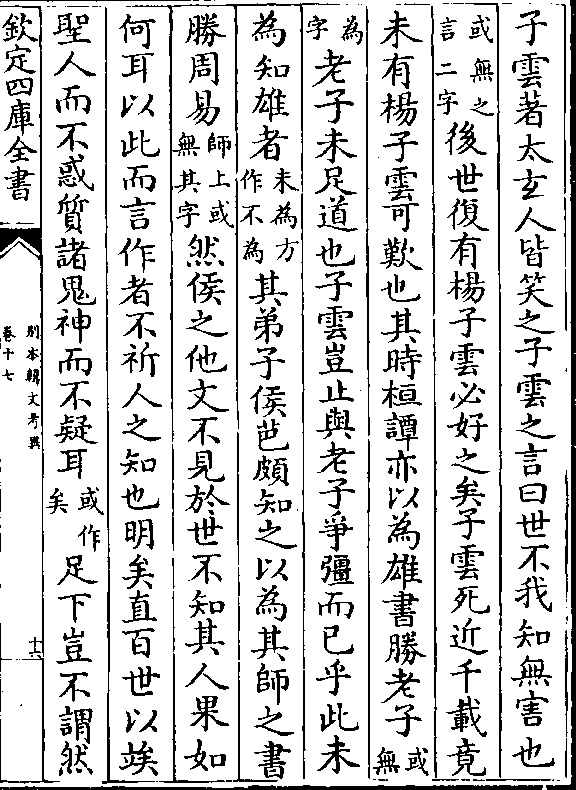 子雲著太玄人皆笑之子雲之言曰世不我知無害也
或無之言二字後世復有楊子雲必好之矣子雲死近千載竟
未有楊子雲可歎也其時桓譚亦以為雄書勝老子或無
為字老子未足道也子雲豈止與老子爭彊而已乎此未
為知雄者未為方作不為其弟子侯芭頗知之以為其師之書
勝周易師上或無其字然侯之他文不見於世不知其人果如
何耳以此而言作者不祈人之知也明矣直百世以竢
聖人而不惑質諸鬼神而不疑耳或作矣足下豈不謂然
欽定四庫全書
別本韓文考異
卷十七
十六